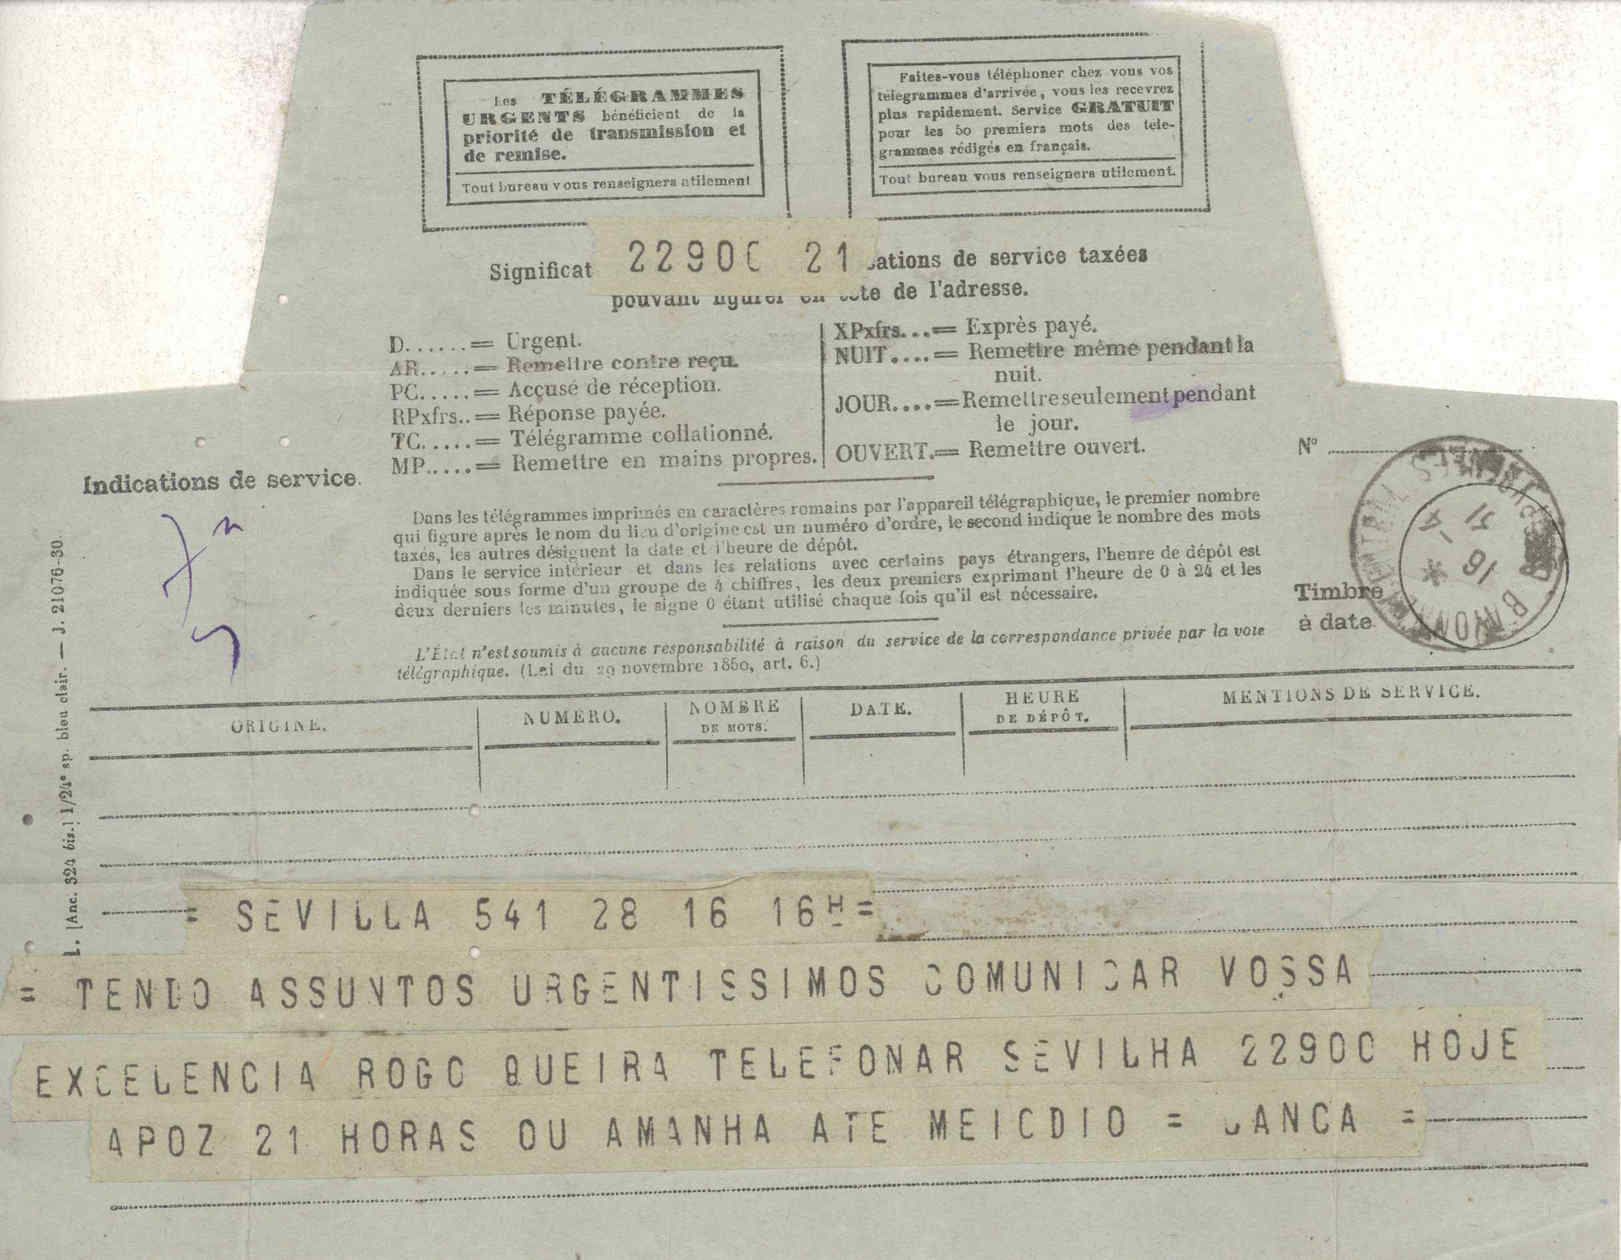 Les TÉLÉGRAMMES
URGENTS bénéficient de la
priorité de transmission et
de remise.
Tout bureau vous renseignera utilement
Faites-vous téléphoner chez vous vos
télégrammes d'arrivée, vous les recevrez
plus rapidement. Service GRATUIT
pour les 50 premiers mots des télé-
grammes rédigés en français.
Tout bureau vous renseignera utilement.
22900 21
Significat cations de service taxées
pouvant figurer en tête de l'adresse.
D......= Urgent.
AR.....= Remettre contre reçu.
PC.....= Accusé de réception.
RPxfrs..= Réponse payée.
TC.....= Télégramme collationné.
MP.....= Remettre en mains propres.
XPxfrs...= Exprès payé.
NUIT....= Remettre même pendant la
nuit.
JOUR....= Remettre seulement pendant
le jour.
OUVERT.= Remettre ouvert.
Indications de service.
N°
Dans les télégrammes imprimés en caractères romains par l'appareil télégraphique, le premier nombre
qui figure après le nom du lieu d'origine est un numéro d'ordre, le second indique le nombre des mots
taxés, les autres désignent la date et l'heure de dépôt.
Dans le service intérieur et dans les relations avec certains pays étrangers, l'heure de dépôt est
indiquée sous forme d'un groupe de 4 chiffres, les deux premiers exprimant l'heure de 0 à 24 et les
deux derniers les minutes, le signe 0 étant utilisé chaque fois qu'il est nécessaire.
Timbre
à date
16 -4 31
L'État n'est soumis à aucune responsabilité à raison du service de la correspondance privée par la voie
télégraphique. (Loi du 29 novembre 1850, art. 6.)
ORIGINE.
NUMÉRO.
NOMBRE
DE MOTS.
DATE.
HEURE
DE DÉPÔT.
MENTIONS DE SERVICE.
[Anc. 324 bis.] 1/24e sp. bleu clair. — J. 21076-30
= SEVILLA 541 28 16 16H =
= TENDO ASSUNTOS URGENTISSIMOS COMUNICAR VOSSA
EXCELENCIA ROGO QUEIRA TELEFONAR SEVILHA 22900 HOJE
APOZ 21 HORAS OU AMANHA ATE MEIODIO = JANCA =